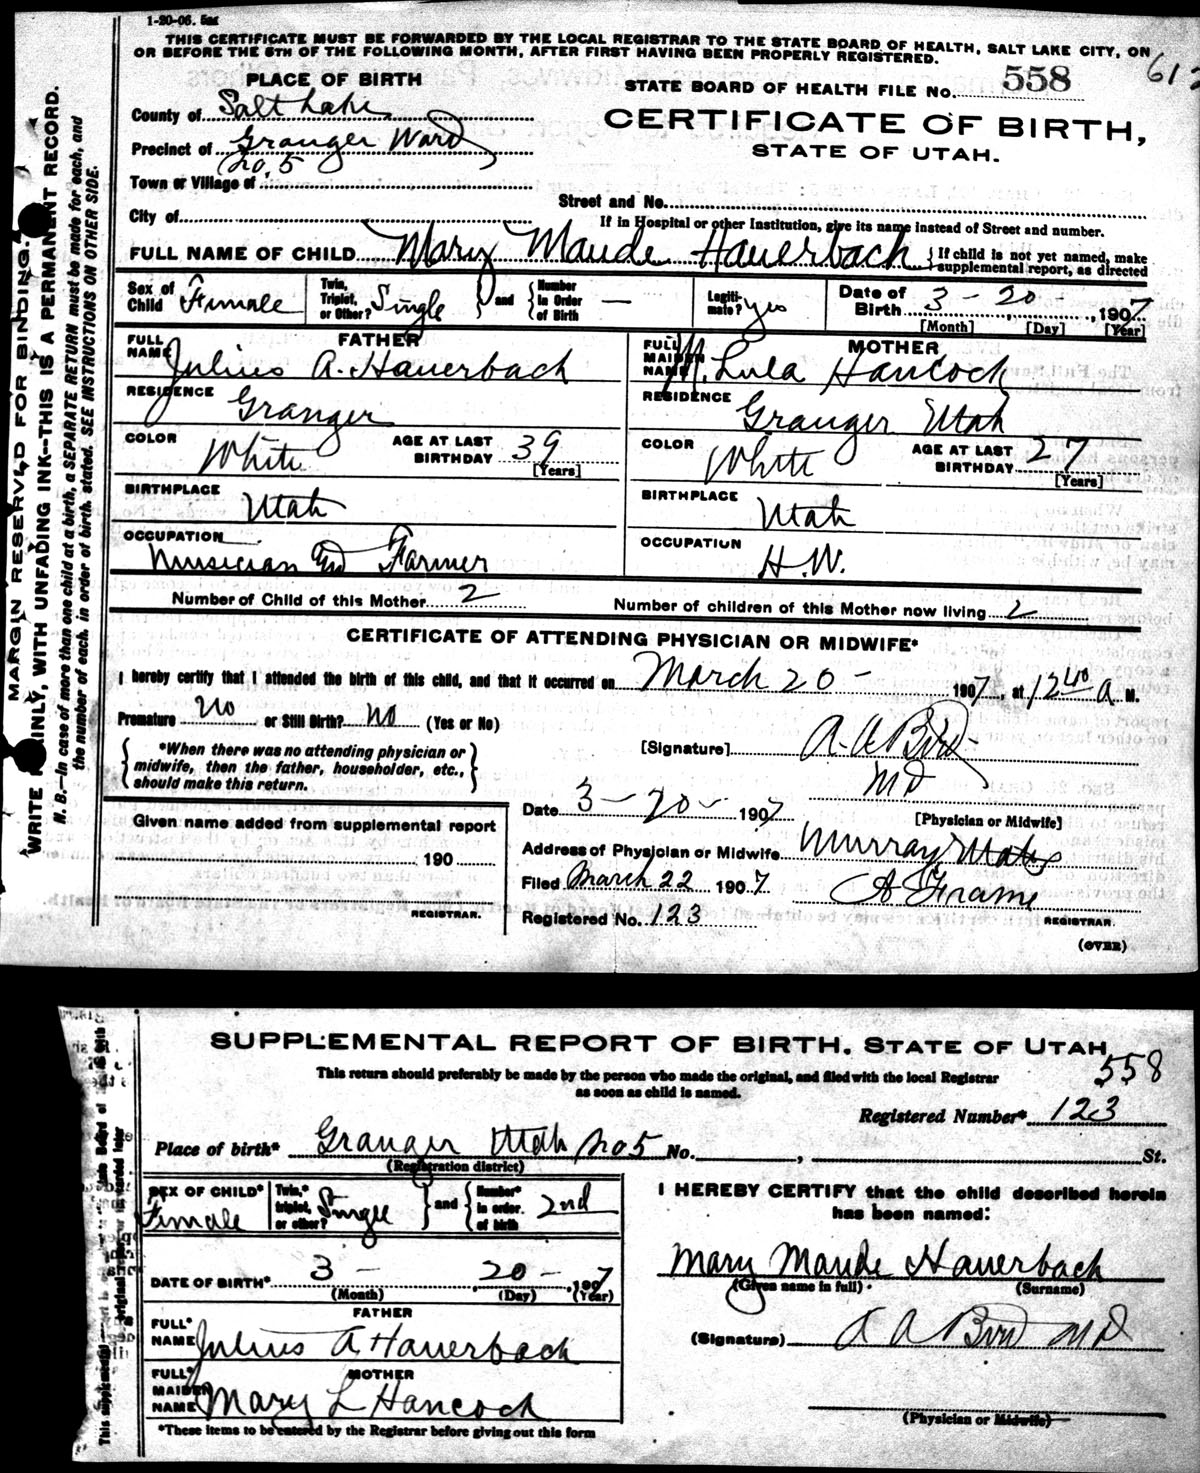 1-20-06. 5m
THIS CERTIFICATE MUST BE FORWARDED BY THE LOCAL REGISTRAR TO THE STATE BOARD OF HEALTH, SALT LAKE CITY, ON
OR BEFORE THE 5TH OF THE FOLLOWING MONTH, AFTER FIRST HAVING BEEN PROPERLY REGISTERED.
PLACE OF BIRTH
STATE BOARD OF HEALTH FILE NO. 558
County of Salt Lake
CERTIFICATE OF BIRTH,
Precinct of Granger Ward
STATE OF UTAH.
No. 5
Town or Village of
Street and No.
City of
If in Hospital or other Institution, give its name instead of Street and number.
FULL NAME OF CHILD Mary Maude Hauerbach { If child is not yet named, make supplemental report, as directed
Sex of Child Female Twin, Triplet, or Other? Single } and { Number in Order of Birth — Legitimate? yes Date of Birth 3 - 20, 1907
[Month] [Day] [Year]
FATHER
FULL NAME Julius A. Hauerbach
RESIDENCE Granger
COLOR White AGE AT LAST BIRTHDAY 39 [Years]
BIRTHPLACE Utah
OCCUPATION Musician and Farmer
MOTHER
FULL MAIDEN NAME M. Lula Hancock
RESIDENCE Granger Utah
COLOR White AGE AT LAST BIRTHDAY 27 [Years]
BIRTHPLACE Utah
OCCUPATION H.W.
Number of Child of this Mother 2 Number of children of this Mother now living 2
CERTIFICATE OF ATTENDING PHYSICIAN OR MIDWIFE*
I hereby certify that I attended the birth of this child, and that it occurred on March 20 - 1907, at 12 40 a M.
Premature no or Still Birth? no (Yes or No)
{ *When there was no attending physician or
midwife, then the father, householder, etc.,
should make this return. }
[Signature] A. A. Bird
MD
[Physician or Midwife]
Date 3 - 20 - 1907
Address of Physician or Midwife Murray Utah
Filed March 22 1907 A Frame
Registered No. 123 REGISTRAR.
(OVER)
Given name added from supplemental report
190
REGISTRAR.
MARGIN RESERVED FOR BINDING.
WRITE PLAINLY, WITH UNFADING INK--THIS IS A PERMANENT RECORD.
N. B.—In case of more than one child at a birth, a SEPARATE RETURN must be made for each, and
the number of each, in order of birth, stated. SEE INSTRUCTIONS ON OTHER SIDE.
SUPPLEMENTAL REPORT OF BIRTH. STATE OF UTAH
558
This return should preferably be made by the person who made the original, and filed with the local Registrar
as soon as child is named.
Registered Number* 123
Place of birth* Granger Utah No 5 No. , St.
(Registration district)
SEX OF CHILD* Female Twin,* triplet, or other? Single } and { Number* in order. of birth 2nd
DATE OF BIRTH* 3 - 20 - 1907
(Month) (Day) (Year)
FATHER
FULL* NAME Julius A Hauerbach
MOTHER
FULL* MAIDEN NAME Mary L Hancock
*These items to be entered by the Registrar before giving out this form
I HEREBY CERTIFY that the child described herein
has been named:
Mary Maude Hauerbach
(Given name in full) (Surname)
(Signature) A A Bird MD
(Physician or Midwife)